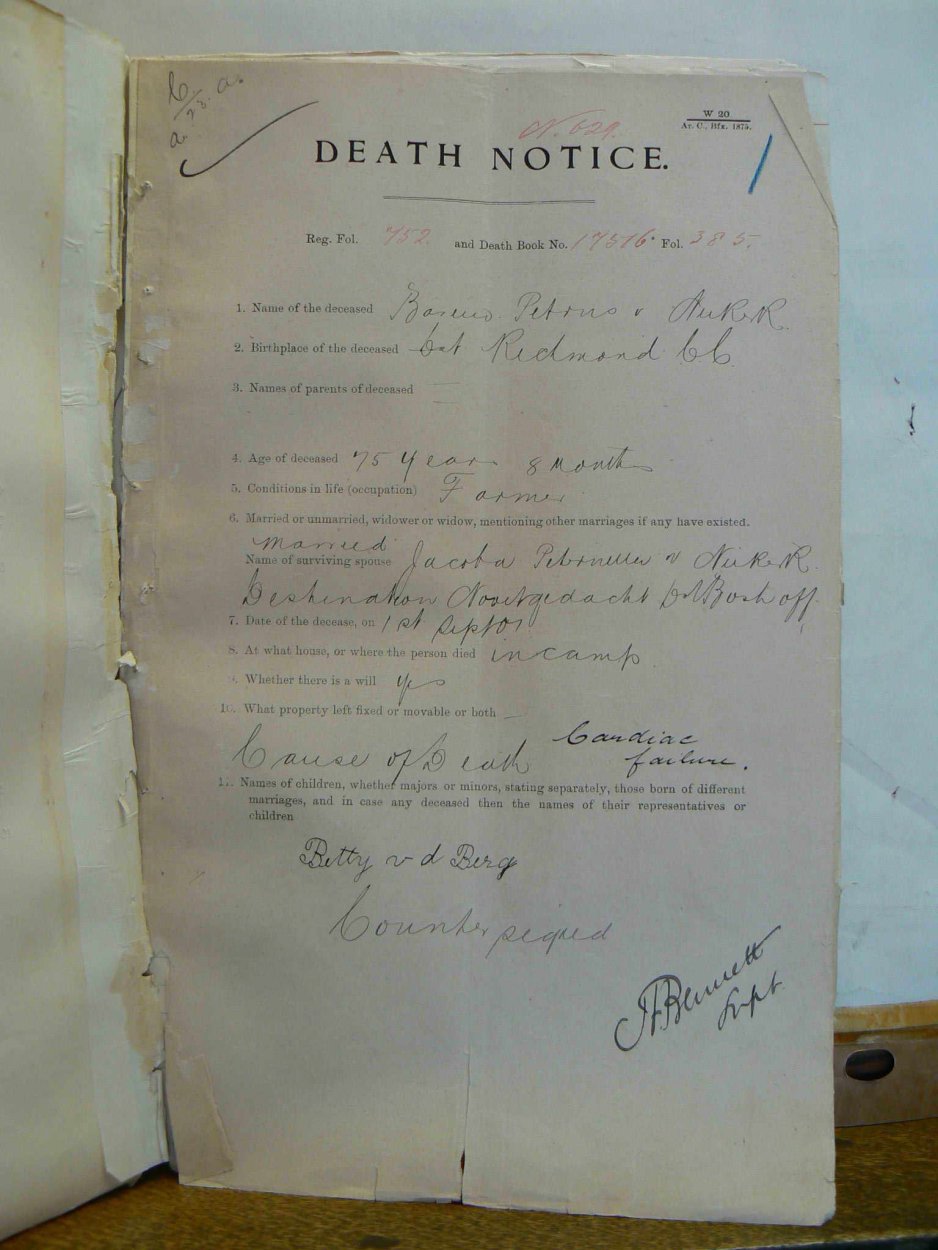 a. 23. a.
N. 629.
W 20
Ar. C., Bfn. 1875.
DEATH NOTICE.
Reg. Fol. 752 and Death Book No. 17516 Fol. 385.
1. Name of the deceased Petrus v Niekerk
2. Birthplace of the deceased Dst Redmond CC
3. Names of parents of deceased —
4. Age of deceased 75 years 8 months
5. Conditions in life (occupation) Farmer
6. Married or unmarried, widower or widow, mentioning other marriages if any have existed.
Married
Name of surviving spouse Jacoba v Niekerk.
Destination Nooitgedacht Dst Boshoff
7. Date of the decease, on 1st Sept 01
8. At what house, or where the person died in camp
9. Whether there is a will yes
10. What property left fixed or movable or both —
Cause of Death Cardiac
failure.
11. Names of children, whether majors or minors, stating separately, those born of different
marriages, and in case any deceased then the names of their representatives or
children
Betty v d Berg
Counter signed
Bennett
Supt